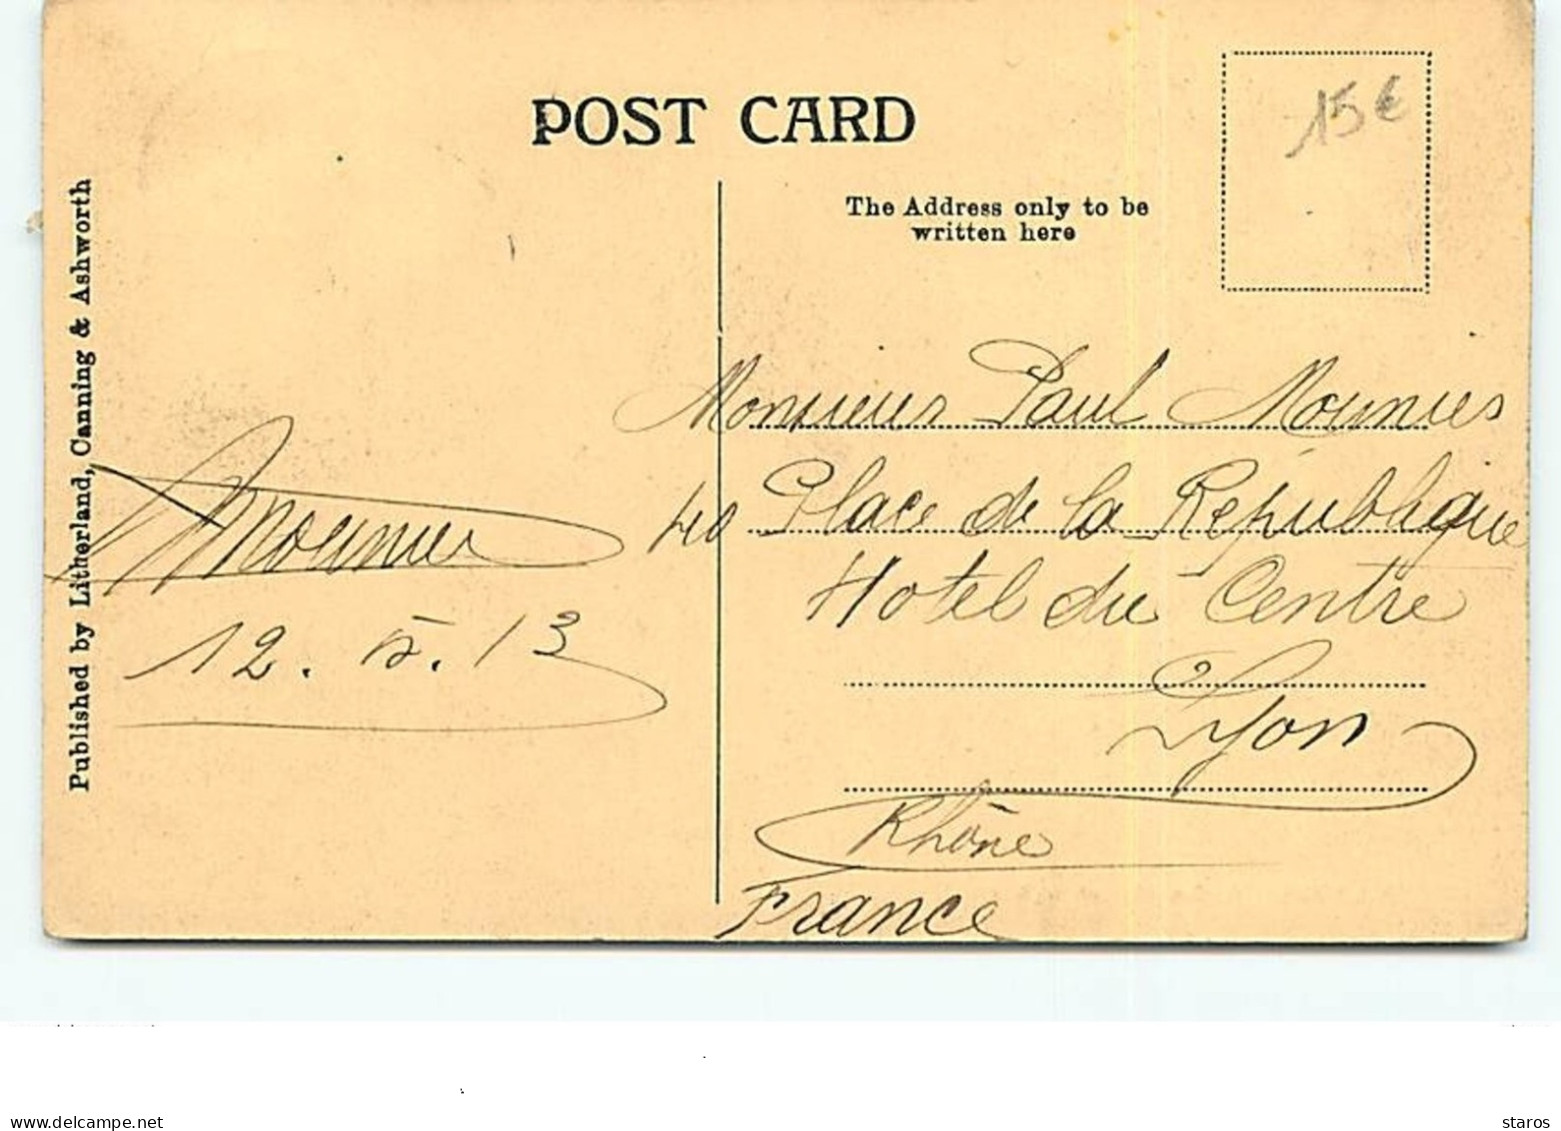 POST CARD
15€
The Address only to be
written here
Published by Litherland, Canning & Ashworth
Monsieur Paul Mounier
40 Place de la République
Hotel du Centre
Lyon
Rhône
France
Mounier
12.5.13
www.delcampe.net
staros